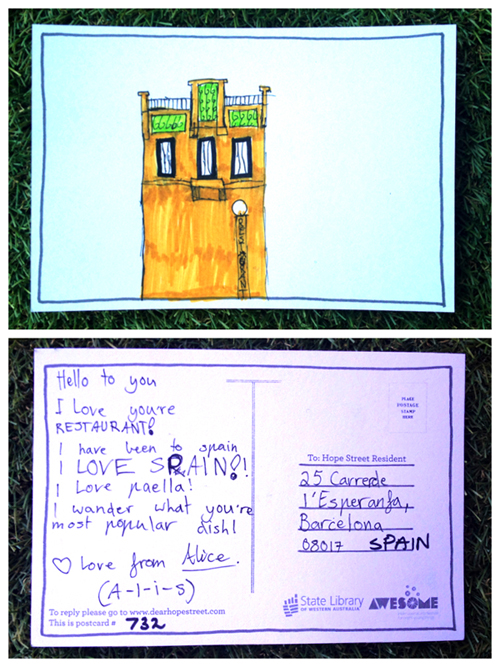 RESTAURANT
Hello to you
I Love you're
RESTAURANT!
I have been to spain
I LOVE SPAIN!!
I Love paella!
I wander what you're
most popular dish!
♡ Love from Alice.
(A-l-i-s)
To reply please go to www.dearhopestreet.com
This is postcard # 732
PLACE
POSTAGE
STAMP
HERE
To: Hope Street Resident
25 Carrerde
l'Esperança,
Barcelona
08017 SPAIN
State Library
OF WESTERN AUSTRALIA
AWESOME